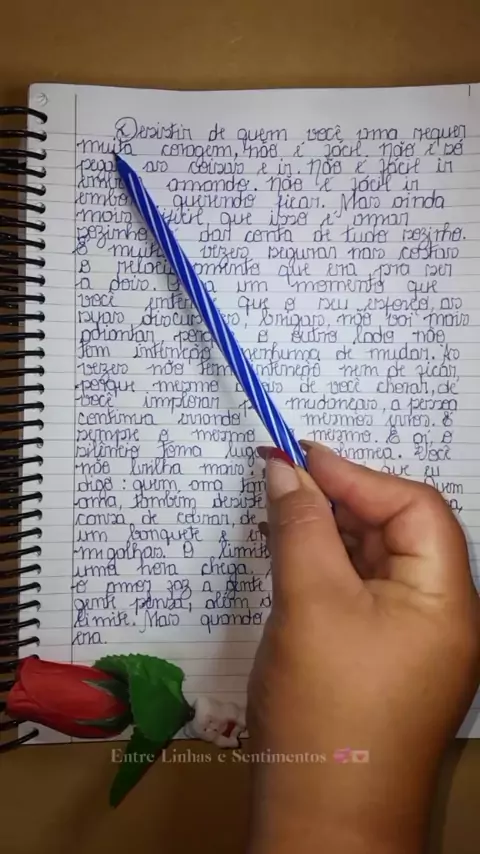 Desistir de quem você ama requer
muita coragem, não é fácil. Não é só
as coisas e ir. Não é fácil ir
amando. Não é fácil ir
querendo ficar. Mas ainda
mais que isso é amar
sozinho dar conta de tudo sozinho.
É vezes segurar nas costas
o que era pra ser
a dois. um momento que
você que o seu esforço, as
suas brigas, não vai mais
adiantar o outro lado não
tem nenhuma de mudar. Às
vezes não tem intenção nem de ficar,
porque mesmo de você chorar, de
você implorar mudanças, a pessoa
continua errando mesmos erros. É
sempre o mesmo mesmo. E aí, o
silêncio toma Você
não briga mais. que eu
digo: quem ama Quem
ama, também desiste
cansa de cobrar, de
um banquete e
migalhas. O limite
uma hora chega.
o amor faz a gente
gente pensa, além d
limite. Mas quando
era.
Entre Linhas e Sentimentos